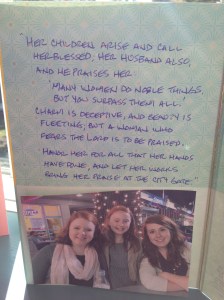 "HER CHILDREN ARISE AND CALL
HER BLESSED; HER HUSBAND ALSO,
AND HE PRAISES HER:
'MANY WOMEN DO NOBLE THINGS,
BUT YOU SURPASS THEM ALL.'
CHARM IS DECEPTIVE, AND BEAUTY IS
FLEETING; BUT A WOMAN WHO
FEARS THE LORD IS TO BE PRAISED.
HONOR HER FOR ALL THAT HER HANDS
HAVE DONE, AND LET HER WORKS
BRING HER PRAISE AT THE CITY GATE."